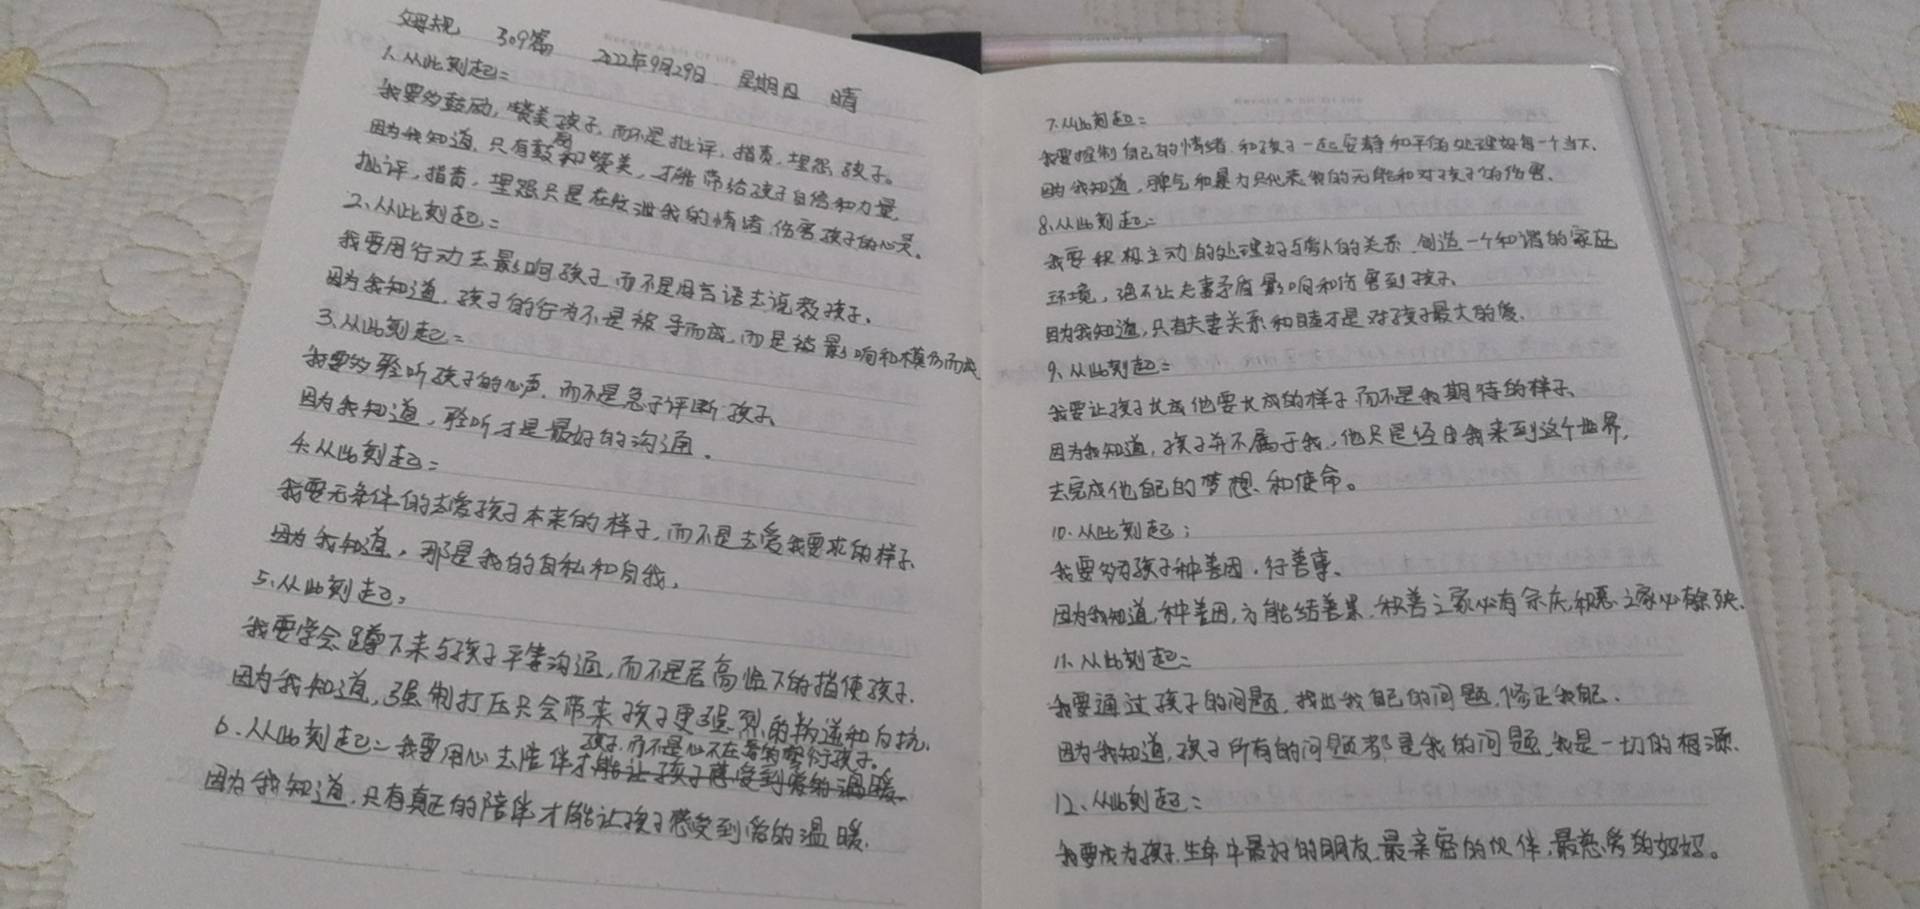 父母规 309篇 2022年9月29日 星期四 晴
1、从此刻起:
我要多鼓励,赞美孩子,而不是批评,指责,埋怨孩子。
因为我知道,只有鼓励和赞美,才能带给孩子自信和力量
批评,指责,埋怨只是在发泄我的情绪,伤害孩子的心灵。
2、从此刻起:
我要用行动去影响孩子而不是用言语去说教孩子,
因为我知道,孩子的行为不是被导而成,而是被影响和模仿而成
3、从此刻起:
我要多聆听孩子的心声,而不是急于评断孩子、
因为我知道,聆听才是最好的沟通.
4、从此刻起:
我要无条件的去爱孩子本来的样子,而不是去爱我要求的样子、
因为我知道,那是我的自私和自我,
5、从此刻起,
我要学会蹲下来与孩子平等沟通,而不是居高临下的指使孩子.
因为我知道,强制打压只会带来孩子更强烈的叛逆和反抗,
6、从此刻起:我要用心去陪伴孩子,而不是心不在焉的敷衍孩子。
才能让孩子感受到爱的温暖
因为我知道,只有真正的陪伴才能让孩子感受到爱的温暖.
7、从此刻起:
我要控制自己的情绪,和孩子一起安静和平的处理好每一个当下、
因为我知道,脾气和暴力只代表我的无能和对孩子的伤害、
8、从此刻起:
我要积极主动的处理好与家人的关系,创造一个和谐的家庭
环境,绝不让夫妻矛盾影响和伤害到孩子、
因为我知道,只有夫妻关系和睦才是对孩子最大的爱、
9、从此刻起:
我要让孩子长成他要长成的样子而不是我期待的样子、
因为我知道,孩子并不属于我,他只是经由我来到这个世界,
去完成他自己的梦想和使命。
10、从此刻起:
我要多为孩子种善因,行善事、
因为我知道,种善因,方能结善果,积善之家必有余庆,积恶之家必有余殃.
11、从此刻起:
我要通过孩子的问题,找出我自己的问题,修正我自己.
因为我知道,孩子所有的问题都是我的问题,我是一切的根源.
12、从此刻起:
我要成为孩子生命中最好的朋友,最亲密的伙伴,最慈爱的妈妈。